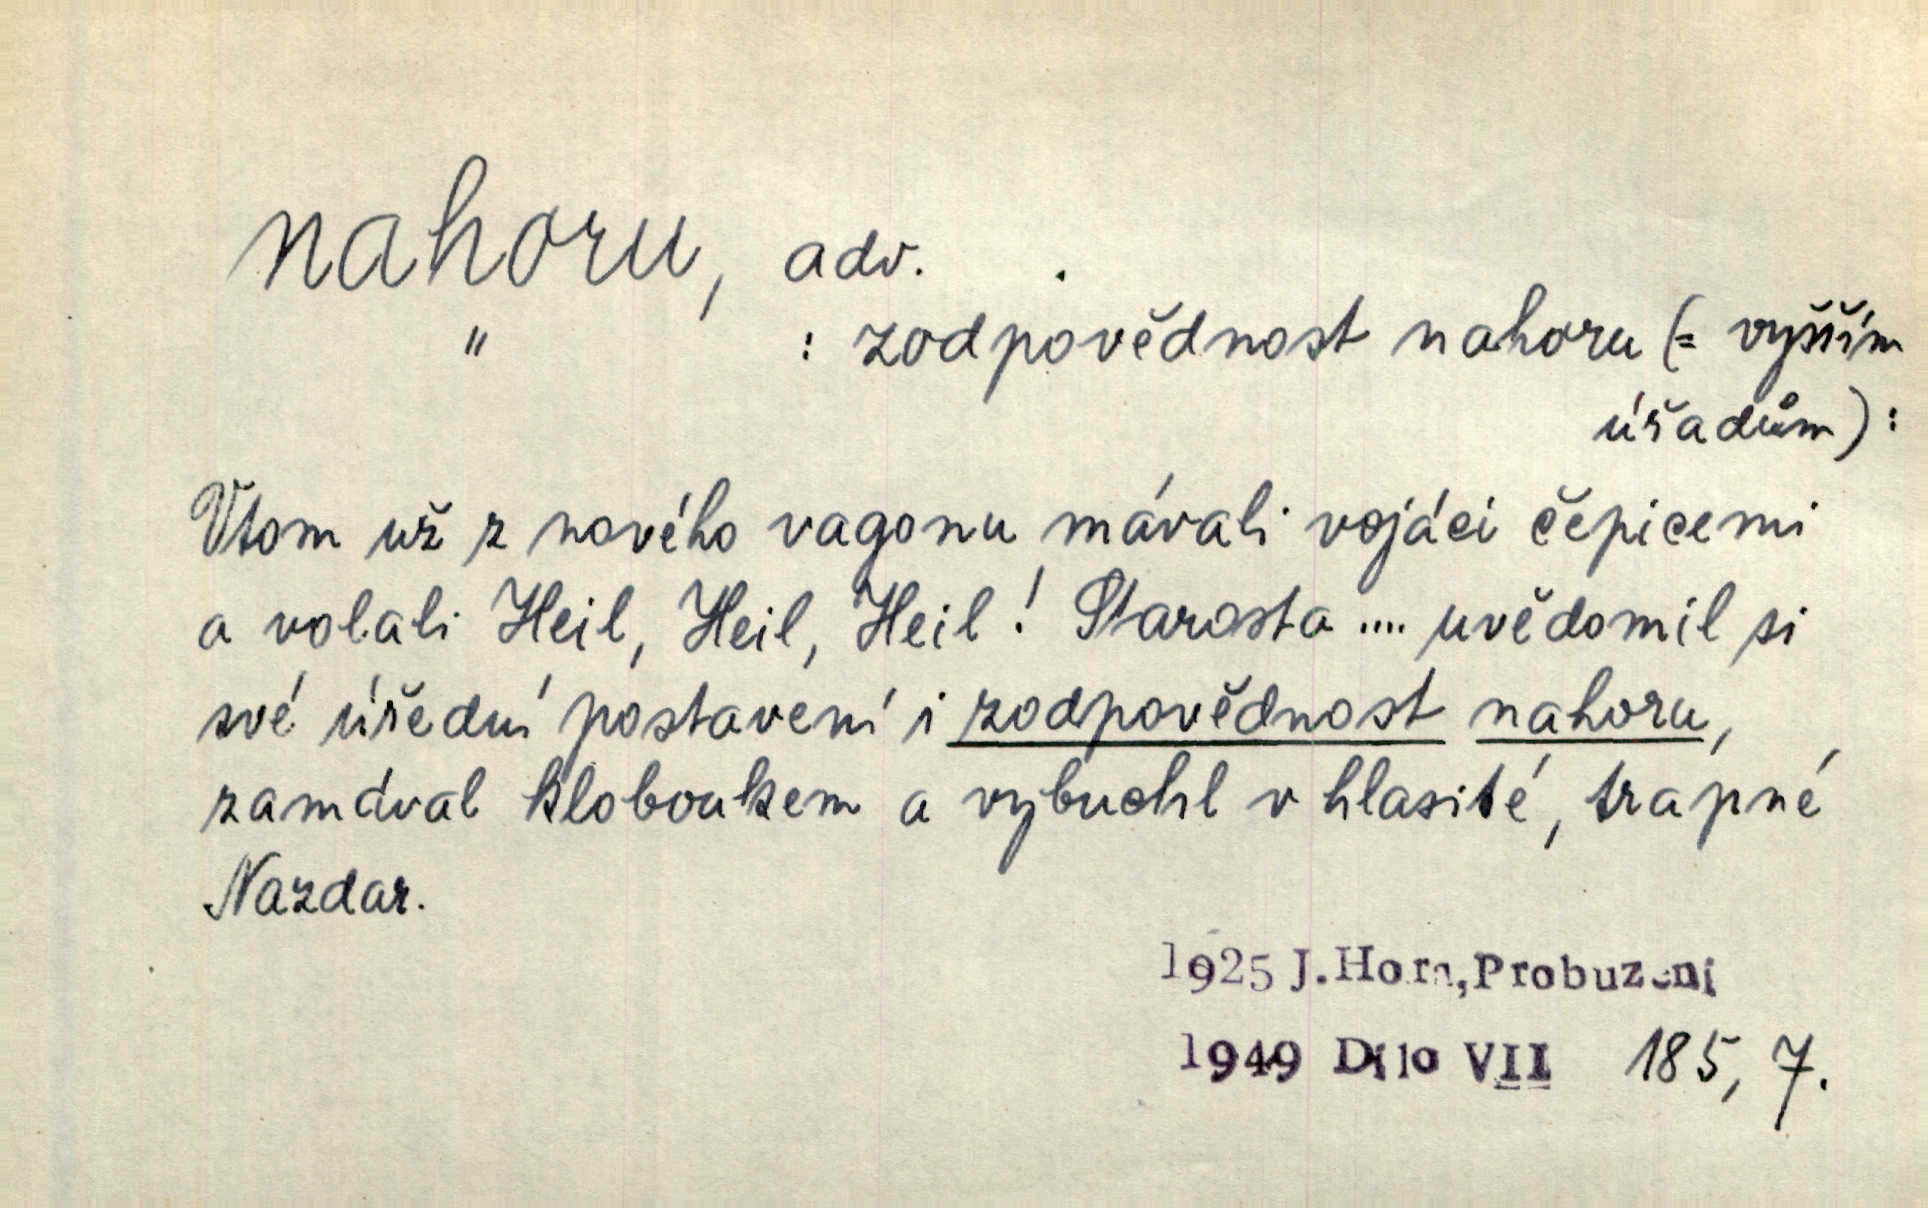 nahoru, adv.
" : zodpovědnost nahoru (= vyšším
úřadům):
Vtom už z nového vagonu mávali vojáci čepicemi
a volali Heil, Heil, Heil! Starosta .... uvědomil si
své úřední postavení i zodpovědnost nahoru,
zamával kloboukem a vybuchl v hlasité, trapné
Nazdar.
1925 J. Hora, Probuzení
1949 Dílo VII 185, 7.